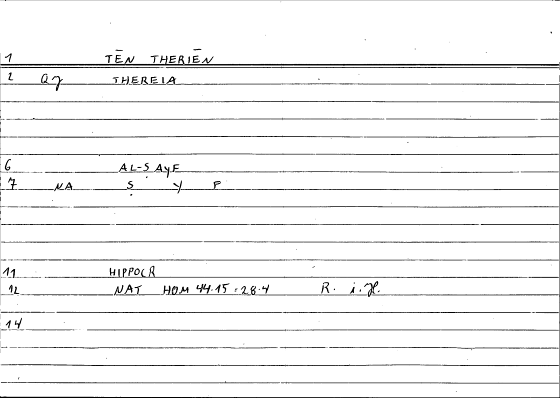 1 TĒN THERIĒN
2 Qγ THEREIA
6 AL-ṢAyF
7 NA Ṣ y F
11 HIPPOCR
12 NAT HOM 44.15:28.4 R. i. H.
14